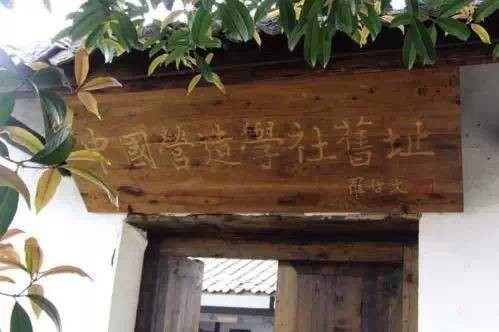 中国营造學社舊址
羅哲文